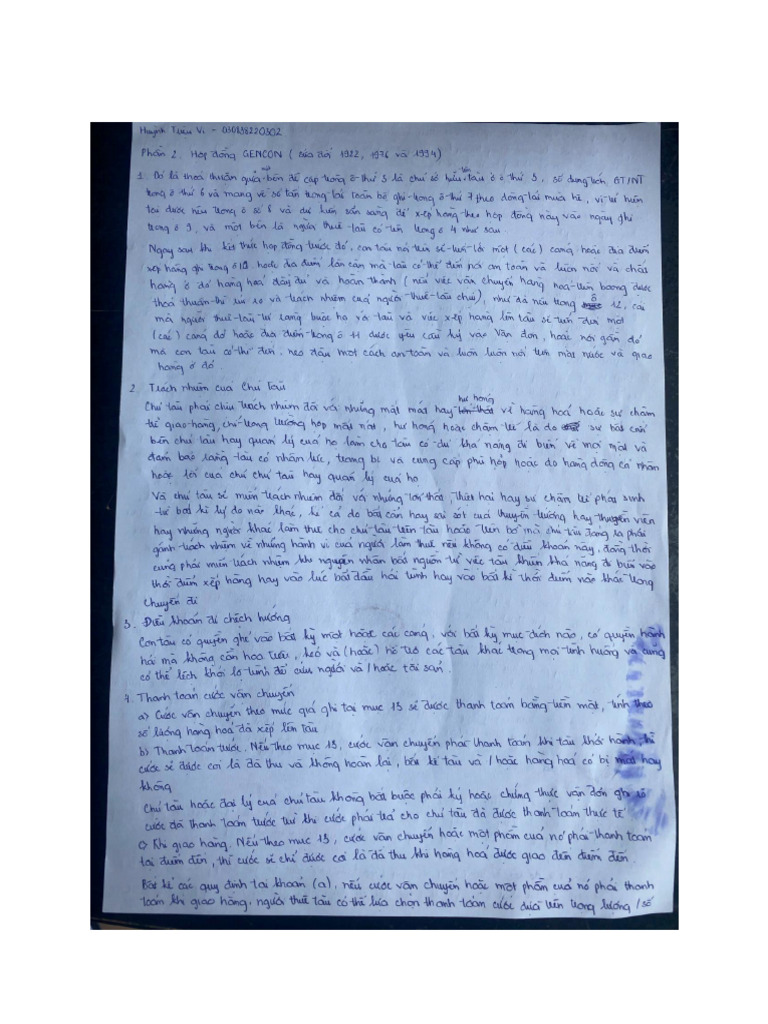 Huỳnh Triều Vi - 030138220502
Phần 2. Hợp đồng GENCON ( sửa đổi 1922, 1976 và 1994)
1. Đó là thoả thuận giữa một bên đề cập trong ô thứ 3 là chủ sở hữu tàu ở ô thứ 5, số dung tích GT/NT
trong ô thứ 6 và mang về số tấn trọng tải toàn bộ ghi trong ô thứ 7 theo dòng tải mùa hè, vị trí hiện
tại được nêu trong ô số 8 và dự kiến sẵn sàng để xếp hàng theo hợp đồng này vào ngày ghi
trong ô 9, và một bên là người thuê tàu có tên trong ô 4 như sau.
Ngay sau khi kết thúc hợp đồng trước đó, con tàu nói trên sẽ tiến tới một (các) cảng hoặc địa điểm
xếp hàng ghi trong ô 10 hoặc địa điểm lân cận mà tàu có thể đến nơi an toàn và luôn nổi và chất
hàng ở đó hàng hoá đầy đủ và hoàn thành ( nếu việc vận chuyển hàng hoá trên boong được
thoả thuận thì rủi ro và trách nhiệm của người thuê tàu chịu), như đã nêu trong ô 12, cái
mà người thuê tàu tự ràng buộc họ và tàu và việc xếp hàng lên tàu sẽ tiến đến một
(các) cảng dỡ hoặc địa điểm trong ô 11 được yêu cầu ký vào Vận đơn, hoặc nơi gần đó
mà con tàu có thể đến, neo đậu một cách an toàn và luôn luôn nổi trên mặt nước và giao
hàng ở đó.
2. Trách nhiệm của Chủ Tàu
Chủ tàu phải chịu trách nhiệm đối với những mất mát hay hư hỏng về hàng hoá hoặc sự chậm
trễ giao hàng, chỉ trong trường hợp mất mát, hư hỏng hoặc chậm trễ là do sự bất cẩn
bên chủ tàu hay quản lý của họ làm cho tàu có đủ khả năng đi biển về mọi mặt và
đảm bảo rằng tàu có nhân lực, trang bị và cung cấp phù hợp hoặc do hàng động cá nhân
hoặc lỗi của chủ chủ tàu hay quản lý của họ
Và chủ tàu sẽ miễn trách nhiệm đối với những tổn thất, thiệt hại hay sự chậm trễ phát sinh
từ bất kì lý do nào khác, kể cả do bất cẩn hay sai sót của thuyền trưởng hay thuyền viên
hay những người khác làm thuê cho chủ tàu trên tàu hoặc trên bờ mà chủ tàu đáng ra phải
gánh trách nhiệm về những hành vi của người làm thuê nếu không có điều khoản này, đồng thời
cũng phải miễn trách nhiệm khi nguyên nhân bắt nguồn từ việc tàu thiếu khả năng đi biển vào
thời điểm xếp hàng hay vào lúc bắt đầu hải trình hay vào bất kì thời điểm nào khác trong
chuyến đi
3. Điều khoản đi chệch hướng
Con tàu có quyền ghé vào bất kỳ một hoặc các cảng, với bất kỳ mục đích nào, có quyền hành
hải mà không cần hoa tiêu, kéo và (hoặc) hỗ trợ các tàu khác trong mọi tình huống và cũng
có thể lệch khỏi lộ trình để cứu người và / hoặc tài sản.
4. Thanh toán cước vận chuyển
a) Cước vận chuyển theo mức giá ghi tại mục 13 sẽ được thanh toán bằng tiền mặt, tính theo
số lượng hàng hoá đã xếp lên tàu
b) Thanh toán trước. Nếu theo mục 13, cước vận chuyển phải thanh toán khi tàu khởi hành, thì
cước sẽ được coi là đã thu và không hoàn lại, bất kể tàu và / hoặc hàng hoá có bị mất hay
không
Chủ tàu hoặc đại lý của chủ tàu không bắt buộc phải ký hoặc chứng thực vận đơn ghi rõ
cước đã thanh toán trước trừ khi cước phải trả cho chủ tàu đã được thanh toán thực tế
c) Khi giao hàng. Nếu theo mục 13, cước vận chuyển hoặc một phần của nó phải thanh toán
tại điểm đến, thì cước sẽ chỉ được coi là đã thu khi hàng hoá được giao đến điểm đến.
Bất kể các quy định tại khoản (a), nếu cước vận chuyển hoặc một phần của nó phải thanh
toán khi giao hàng, người thuê tàu có thể lựa chọn thanh toán cước dựa trên trọng lượng / số